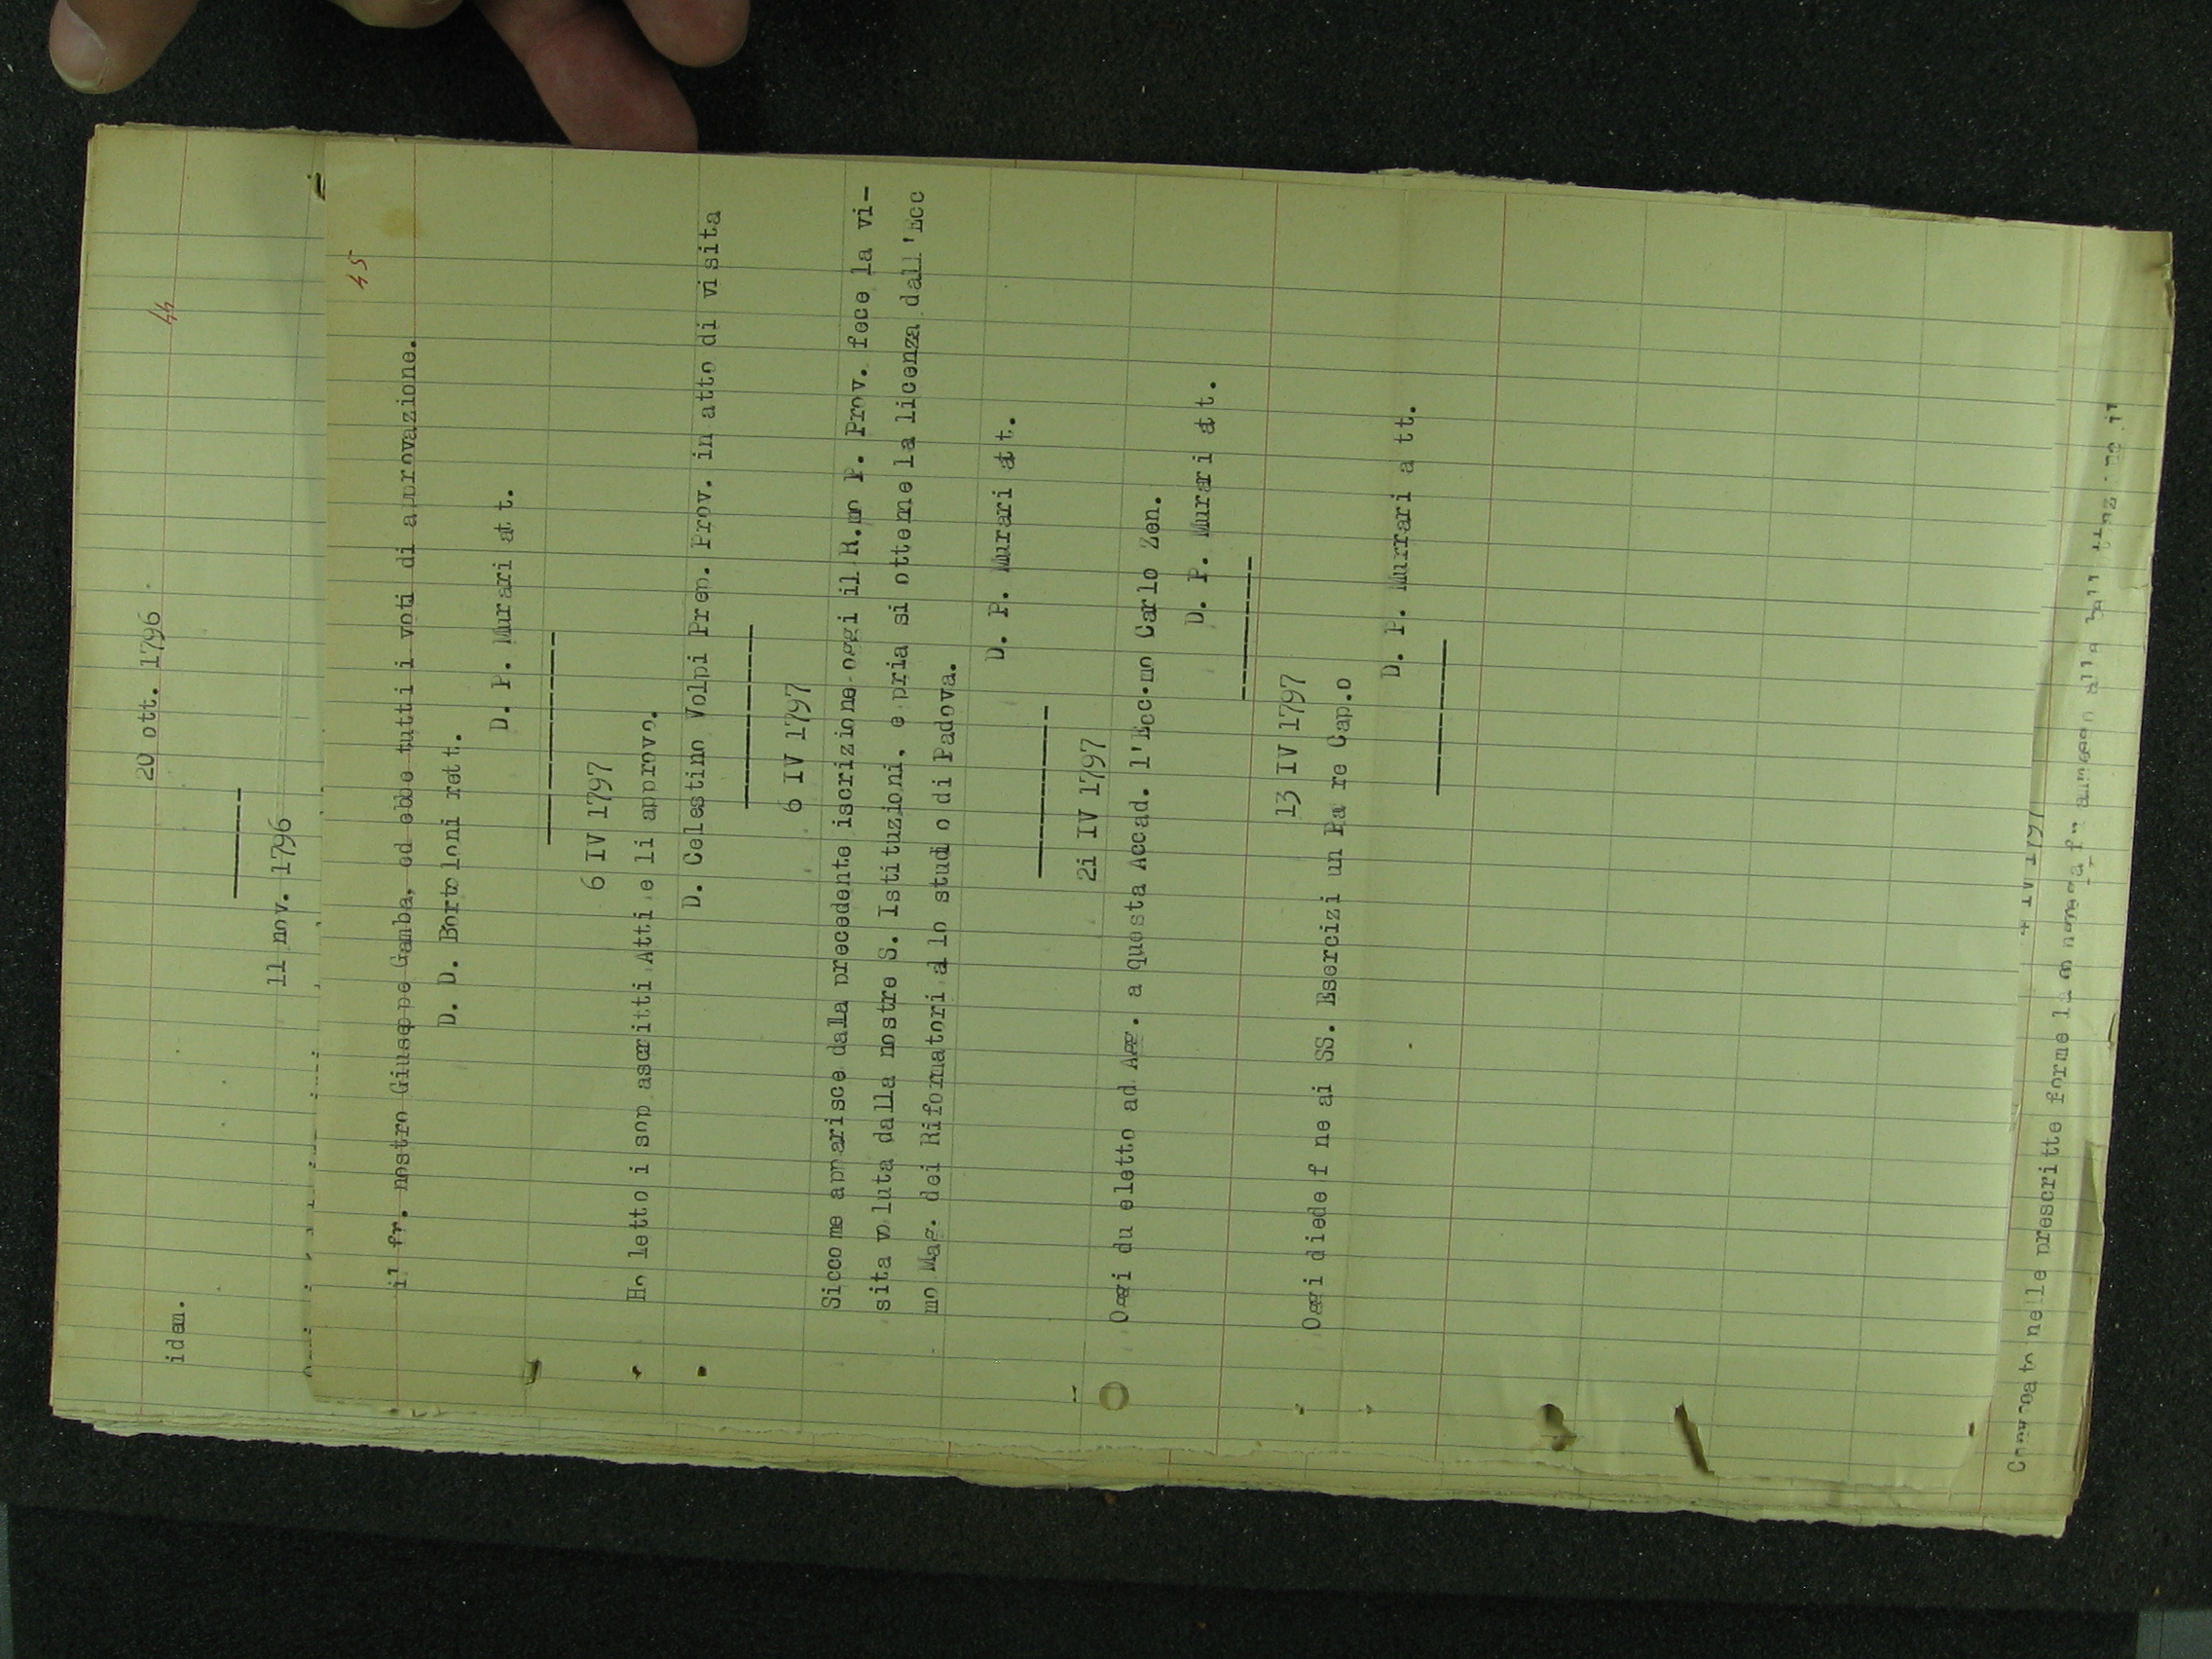 44
20 ott. 1796
idem.
11 nov. 1796
45
il fr. nostro Giuseppe Gamba, ed ebbe tutti i voti di approvazione.
D. D. Bortoloni rett.
D. P. Murari att.
6 IV 1797
Ho letto i sop ascritti Atti e li approvo.
D. Celestino Volpi Prep. Prov. in atto di visita
6 IV 1797
Siccome apparisce dalla precedente iscrizione oggi il R.mo P. Prov. fece la vi-
sita voluta dalla nostre S. Istituzioni, e pria si ottenne la licenza dall'Ecc
mo Mag. dei Riformatori allo studio di Padova.
D. P. Murari att.
2i IV 1797
Oggi du eletto ad Agg. a questa Accad. l'Ecc.mo Carlo Zen.
D. P. Murari att.
13 IV 1797
Oggi diede f ne ai SS. Esercizi un Pa re Cap.o
D. P. Murrari att.
IV 1797
nelle prescritte forme